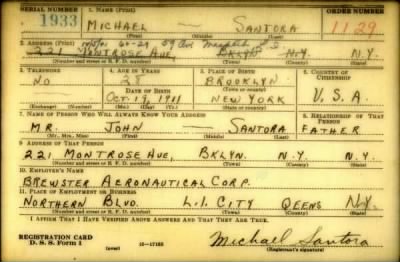 SERIAL NUMBER 1. NAME (Print) ORDER NUMBER
1933 MICHAEL — SANTORA 1129
(First) (Middle) (Last)
10/5/41 60-29 59
2. ADDRESS (Print)
221 MONTROSE AVE, BKLYN N.Y. N.Y.
(Number and street or R. F. D. number) (Town) (County) (State)
3. TELEPHONE 4. AGE IN YEARS 5. PLACE OF BIRTH 6. COUNTRY OF CITIZENSHIP
NO 28 BROOKLYN
DATE OF BIRTH (Town or county)
OCT 19, 1911 NEW YORK U.S.A.
(Exchange) (Number) (Mo.) (Day) (Yr.) (State or country)
7. NAME OF PERSON WHO WILL ALWAYS KNOW YOUR ADDRESS 8. RELATIONSHIP OF THAT PERSON
MR. JOHN — SANTORA FATHER
(Mr., Mrs., Miss) (First) (Middle) (Last)
9. ADDRESS OF THAT PERSON
221 MONTROSE AVE, BKLYN. N.Y. N.Y.
(Number and street or R. F. D. number) (Town) (County) (State)
10. EMPLOYER'S NAME
BREWSTER AERONAUTICAL CORP.
11. PLACE OF EMPLOYMENT OR BUSINESS
NORTHERN BLVD. L.I. CITY QEENS N.Y.
(Number and street or R. F. D. number) (Town) (County) (State)
I AFFIRM THAT I HAVE VERIFIED ABOVE ANSWERS AND THAT THEY ARE TRUE.
REGISTRATION CARD
D. S. S. Form 1 (over) 16—17105 Michael Santora
(Registrant's signature)